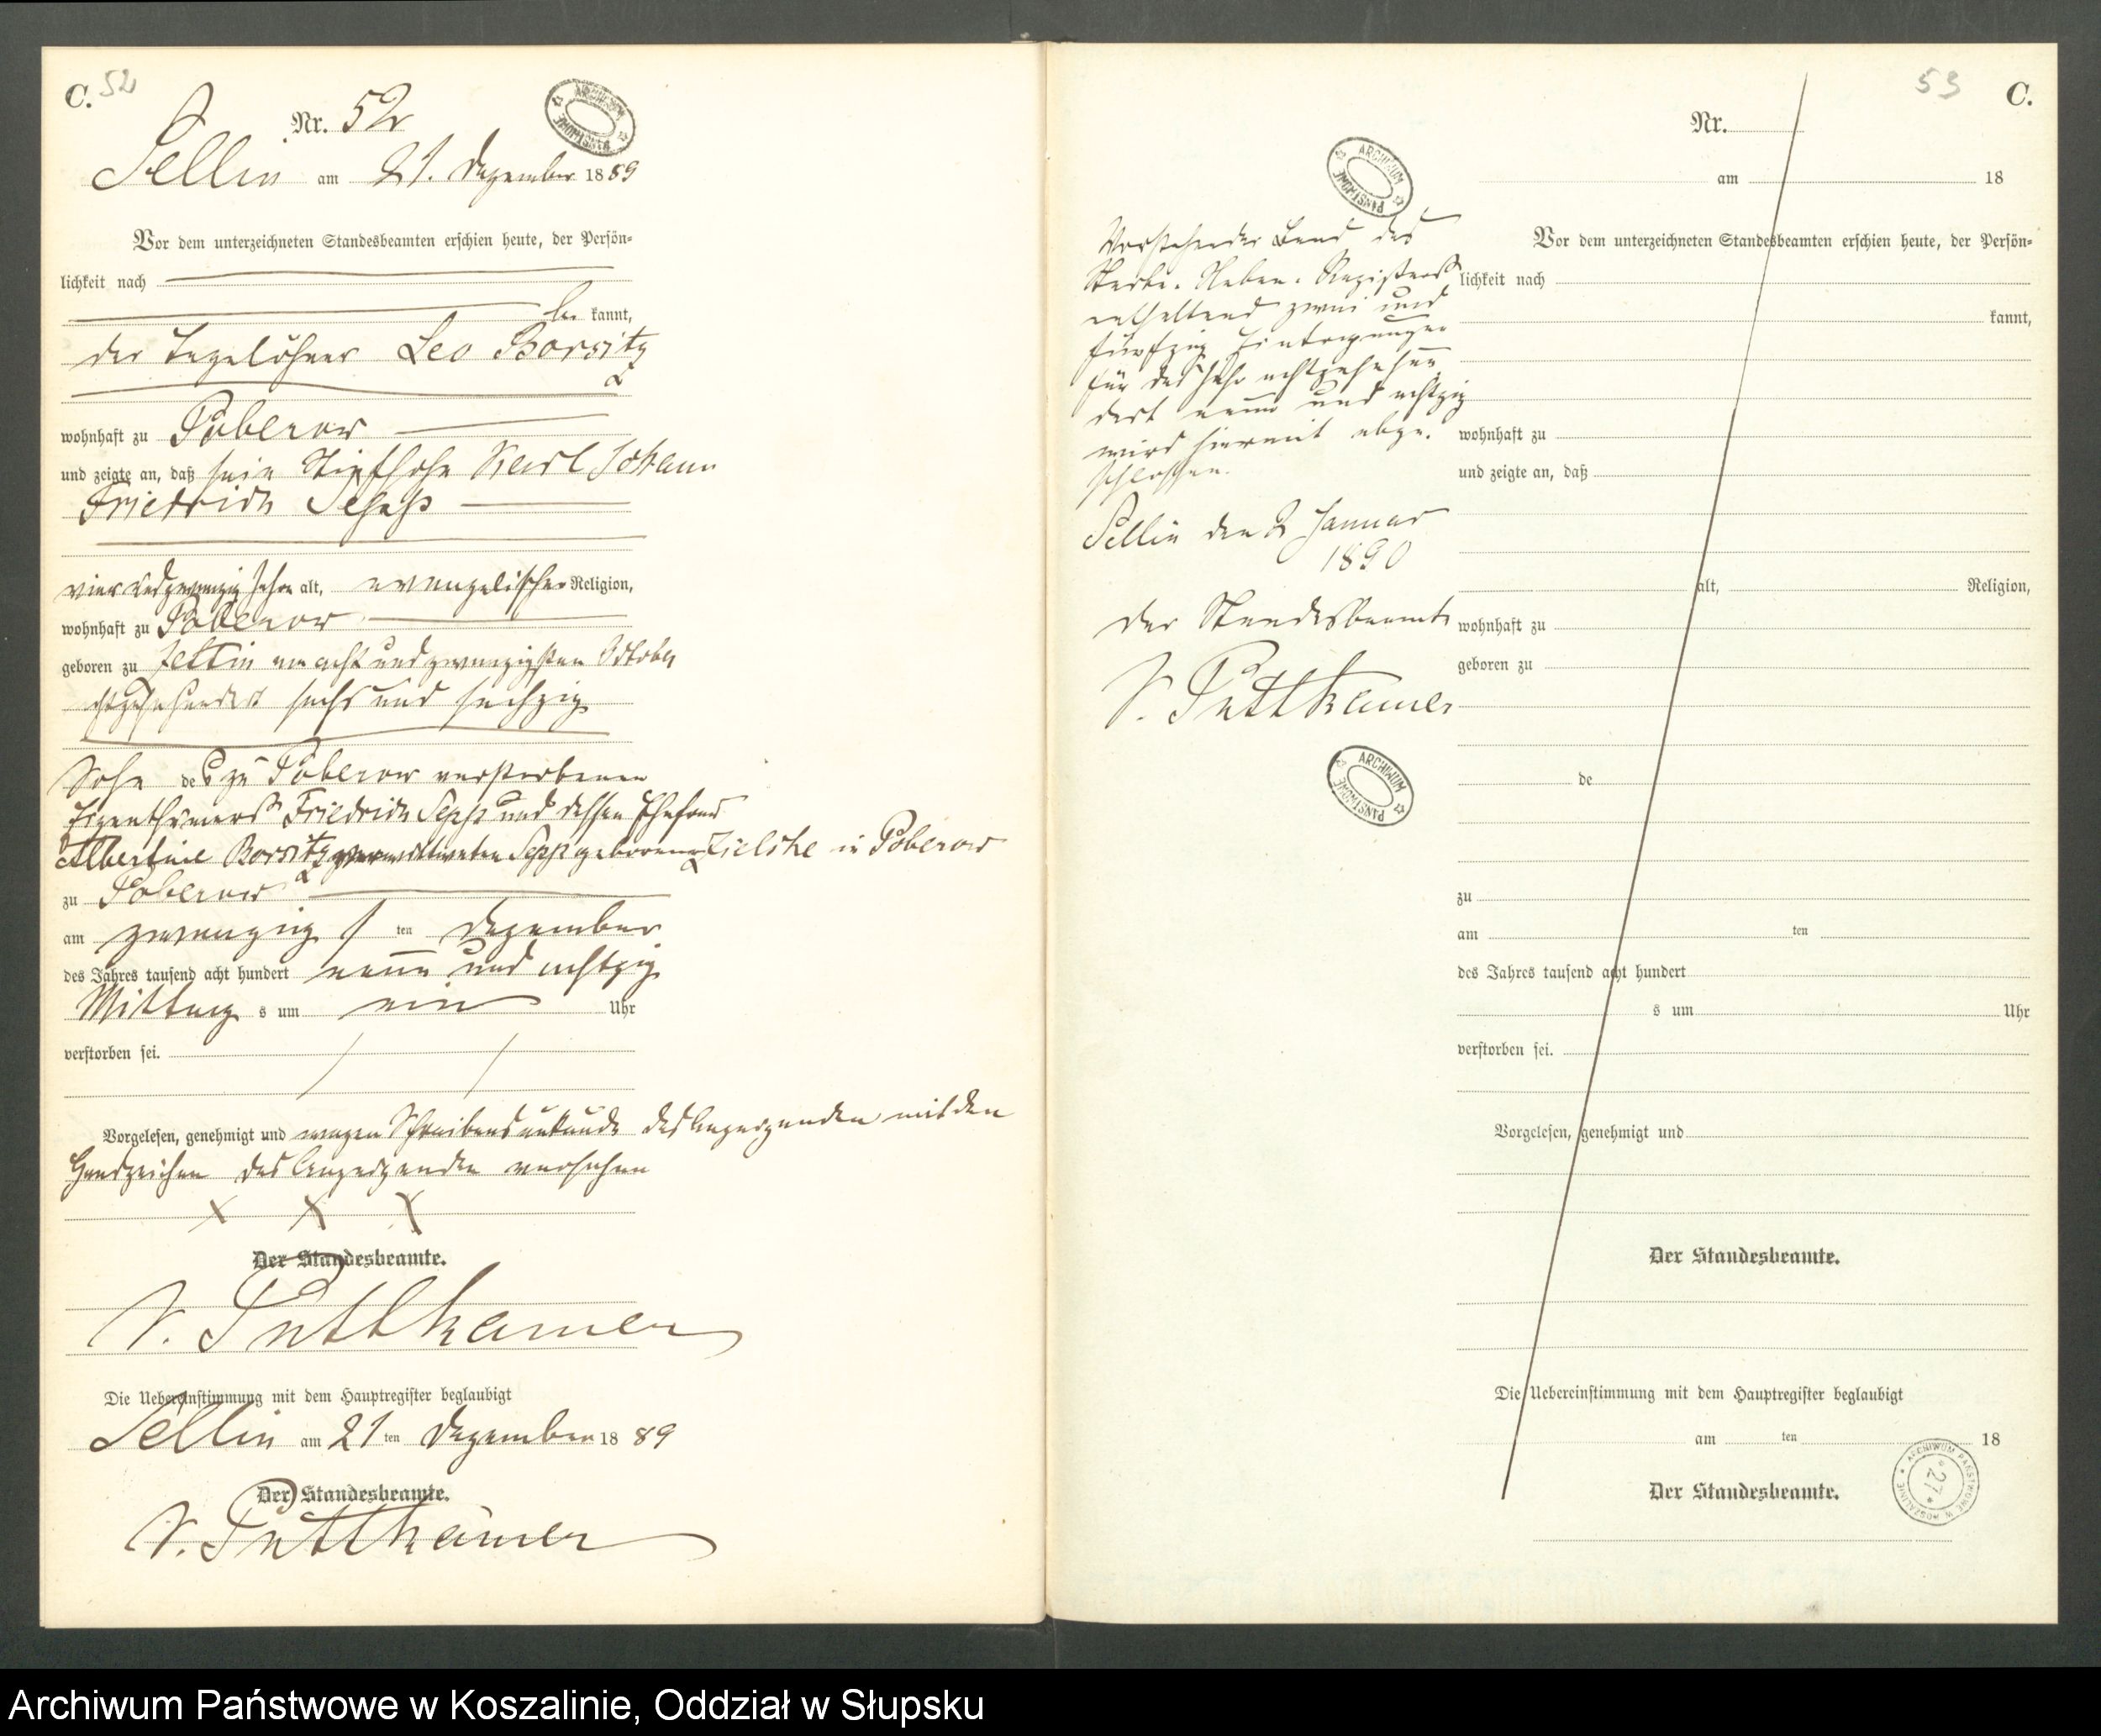 C. 52
Nr. 52
Sellin am 21. Dezember 1889
Vor dem unterzeichneten Standesbeamten erschien heute, der Persön-
lichkeit nach
be kannt,
der Tagelöhner Leo Borsitz
wohnhaft zu Poberow
und zeigte an, daß sein Stiefsohn Karl Johann
Friedrich
vier und zwanzig Jahre alt, evangelischer Religion,
wohnhaft zu Poberow
geboren zu am acht und zwanzigsten Oktober
achtzehnhundert sechs und sechzig
Sohn des zu Poberow verstorbenen
Eigenthümers Friedrich und dessen Ehefrau
Albertine Borsitz verwittweten geborene Zielske in Poberow
zu Poberow
am zwanzig ten Dezember
des Jahres tausend acht hundert neun und achtzig
Mittag s um ein Uhr
verstorben sei.
Vorgelesen, genehmigt und wegen Schreibensunkunde des Anzeigenden mit den
Handzeichen des Anzeigenden versehen
X X X
Der Standesbeamte.
v. Puttkamer
Die Uebereinstimmung mit dem Hauptregister beglaubigt
Sellin am 21 ten Dezember 18 89
Der Standesbeamte.
v. Puttkamer
ARCHIWUM PAŃSTWOWE
53 C.
Nr.
am 18
Vor dem unterzeichneten Standesbeamten erschien heute, der Persön-
lichkeit nach
kannt,
wohnhaft zu
und zeigte an, daß
alt, Religion,
wohnhaft zu
geboren zu
de
zu
am ten
des Jahres tausend acht hundert
s um Uhr
verstorben sei.
Vorgelesen, genehmigt und
Der Standesbeamte.
Die Uebereinstimmung mit dem Hauptregister beglaubigt
am ten 18
Der Standesbeamte.
ARCHIWUM PAŃSTWOWE
Vorstehender Band des
Sterbe-Neben-Registers
enthaltend zwei und
fünfzig Eintragungen
für das Jahr achtzehnhun
dert neun und achtzig
wird hiermit abge-
schlossen.
Sellin den 2 Januar
1890
Der Standesbeamte
v. Puttkamer
ARCHIWUM PAŃSTWOWE
ARCHIWUM PAŃSTWOWE W KOSZALINIE
* 27 *
Archiwum Państwowe w Koszalinie, Oddział w Słupsku